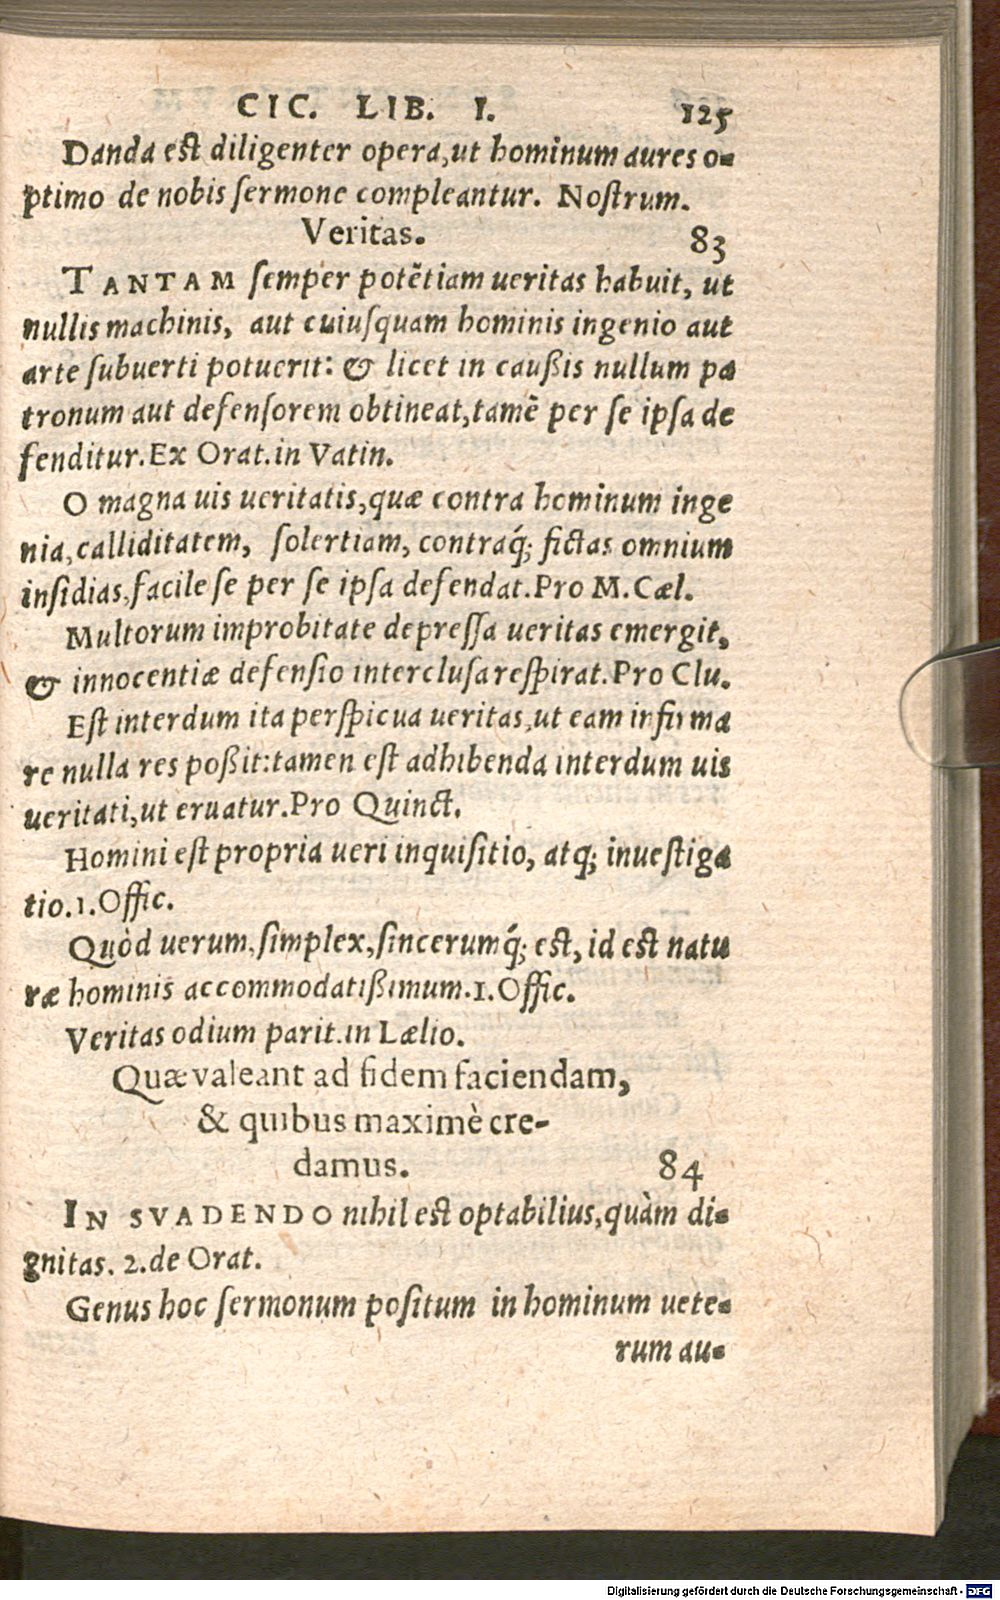 CIC. LIB. I. 125
Danda est diligenter opera,ut hominum aures o-
ptimo de nobis sermone compleantur. Nostrum.
Veritas. 83
TANTAM semper potẽtiam ueritas habuit, ut
nullis machinis, aut cuiusquam hominis ingenio aut
arte subuerti potuerit: & licet in caußis nullum pa
tronum aut defensorem obtineat,tamẽ per se ipsa de
fenditur.Ex Orat.in Vatin.
O magna uis ueritatis,quæ contra hominum inge
nia,calliditatem, solertiam, contraq́; fictas omnium
insidias,facile se per se ipsa defendat.Pro M.Cæl.
Multorum improbitate depressa ueritas emergit,
& innocentiæ defensio interclusa respirat.Pro Clu.
Est interdum ita perspicua ueritas,ut eam infirma
re nulla res poßit:tamen est adhibenda interdum uis
ueritati,ut eruatur.Pro Quinct.
Homini est propria ueri inquisitio, atq; inuestiga
tio.1.Offic.
Quòd uerum,simplex,sincerumq́; est, id est natu
ræ hominis accommodatißimum.1.Offic.
Veritas odium parit.in Lælio.
Quæ valeant ad fidem faciendam,
& quibus maximè cre-
damus. 84
IN SVADENDO nihil est optabilius,quàm di-
gnitas. 2.de Orat.
Genus hoc sermonum positum in hominum uete-
rum au-
Digitalisierung gefördert durch die Deutsche Forschungsgemeinschaft - DFG